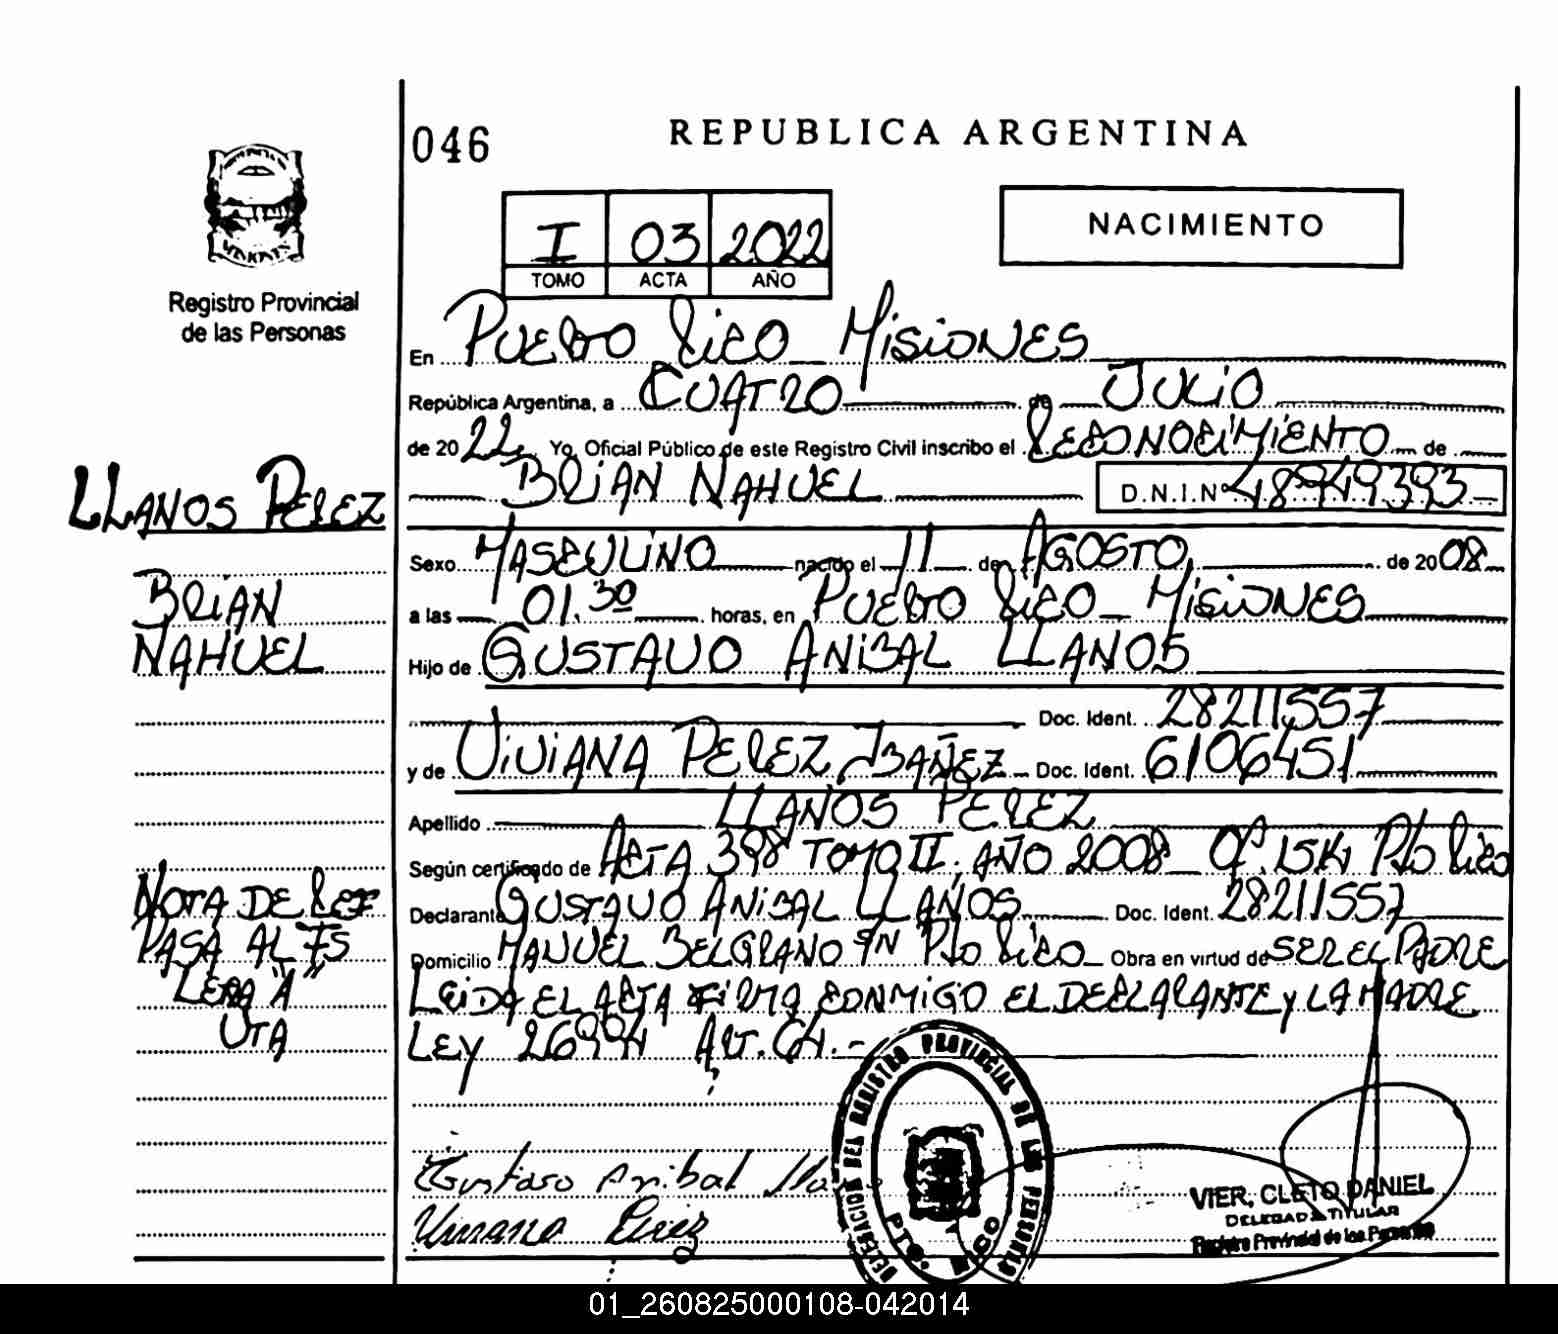 046
REPUBLICA ARGENTINA
I 03 2022
TOMO ACTA AÑO
NACIMIENTO
Registro Provincial
de las Personas
En PUERTO RICO MISIONES
República Argentina, a CUATRO de JULIO
de 2022 Yo, Oficial Público de este Registro Civil inscribo el RECONOCIMIENTO de
BRIAN NAHUEL D.N.I.Nº 48949393
LLANOS PEREZ
BRIAN
NAHUEL
Sexo MASCULINO nacido el 11 de AGOSTO de 2008
a las 01.30 horas, en PUERTO RICO MISIONES
Hijo de GUSTAVO ANIBAL LLANOS
Doc. Ident. 28211557
y de VIVIANA PEREZ IBAÑEZ Doc. Ident. 6106451
Apellido LLANOS PEREZ
Según certificado de ACTA 398 TOMO II. AÑO 2008 Of. Pto Rico
Declarante GUSTAVO ANIBAL LLANOS Doc. Ident. 28211557
Domicilio MANUEL BELGRANO SN Pto RICO Obra en virtud de SER EL PADRE
LEIDA EL ACTA FIRMA CONMIGO EL DECLARANTE y LA MADRE
LEY 26994 ART. 64.-
NOTA DE REF
PASA AL 75
"A"
VTA
Gustavo Anibal
Viviana Perez
DELEGACION DEL REGISTRO PROVINCIAL DE LAS PERSONAS
PTO. RICO
VIER, CLETO DANIEL
DELEGADO TITULAR
Registro Provincial de las Personas
01_260825000108-042014